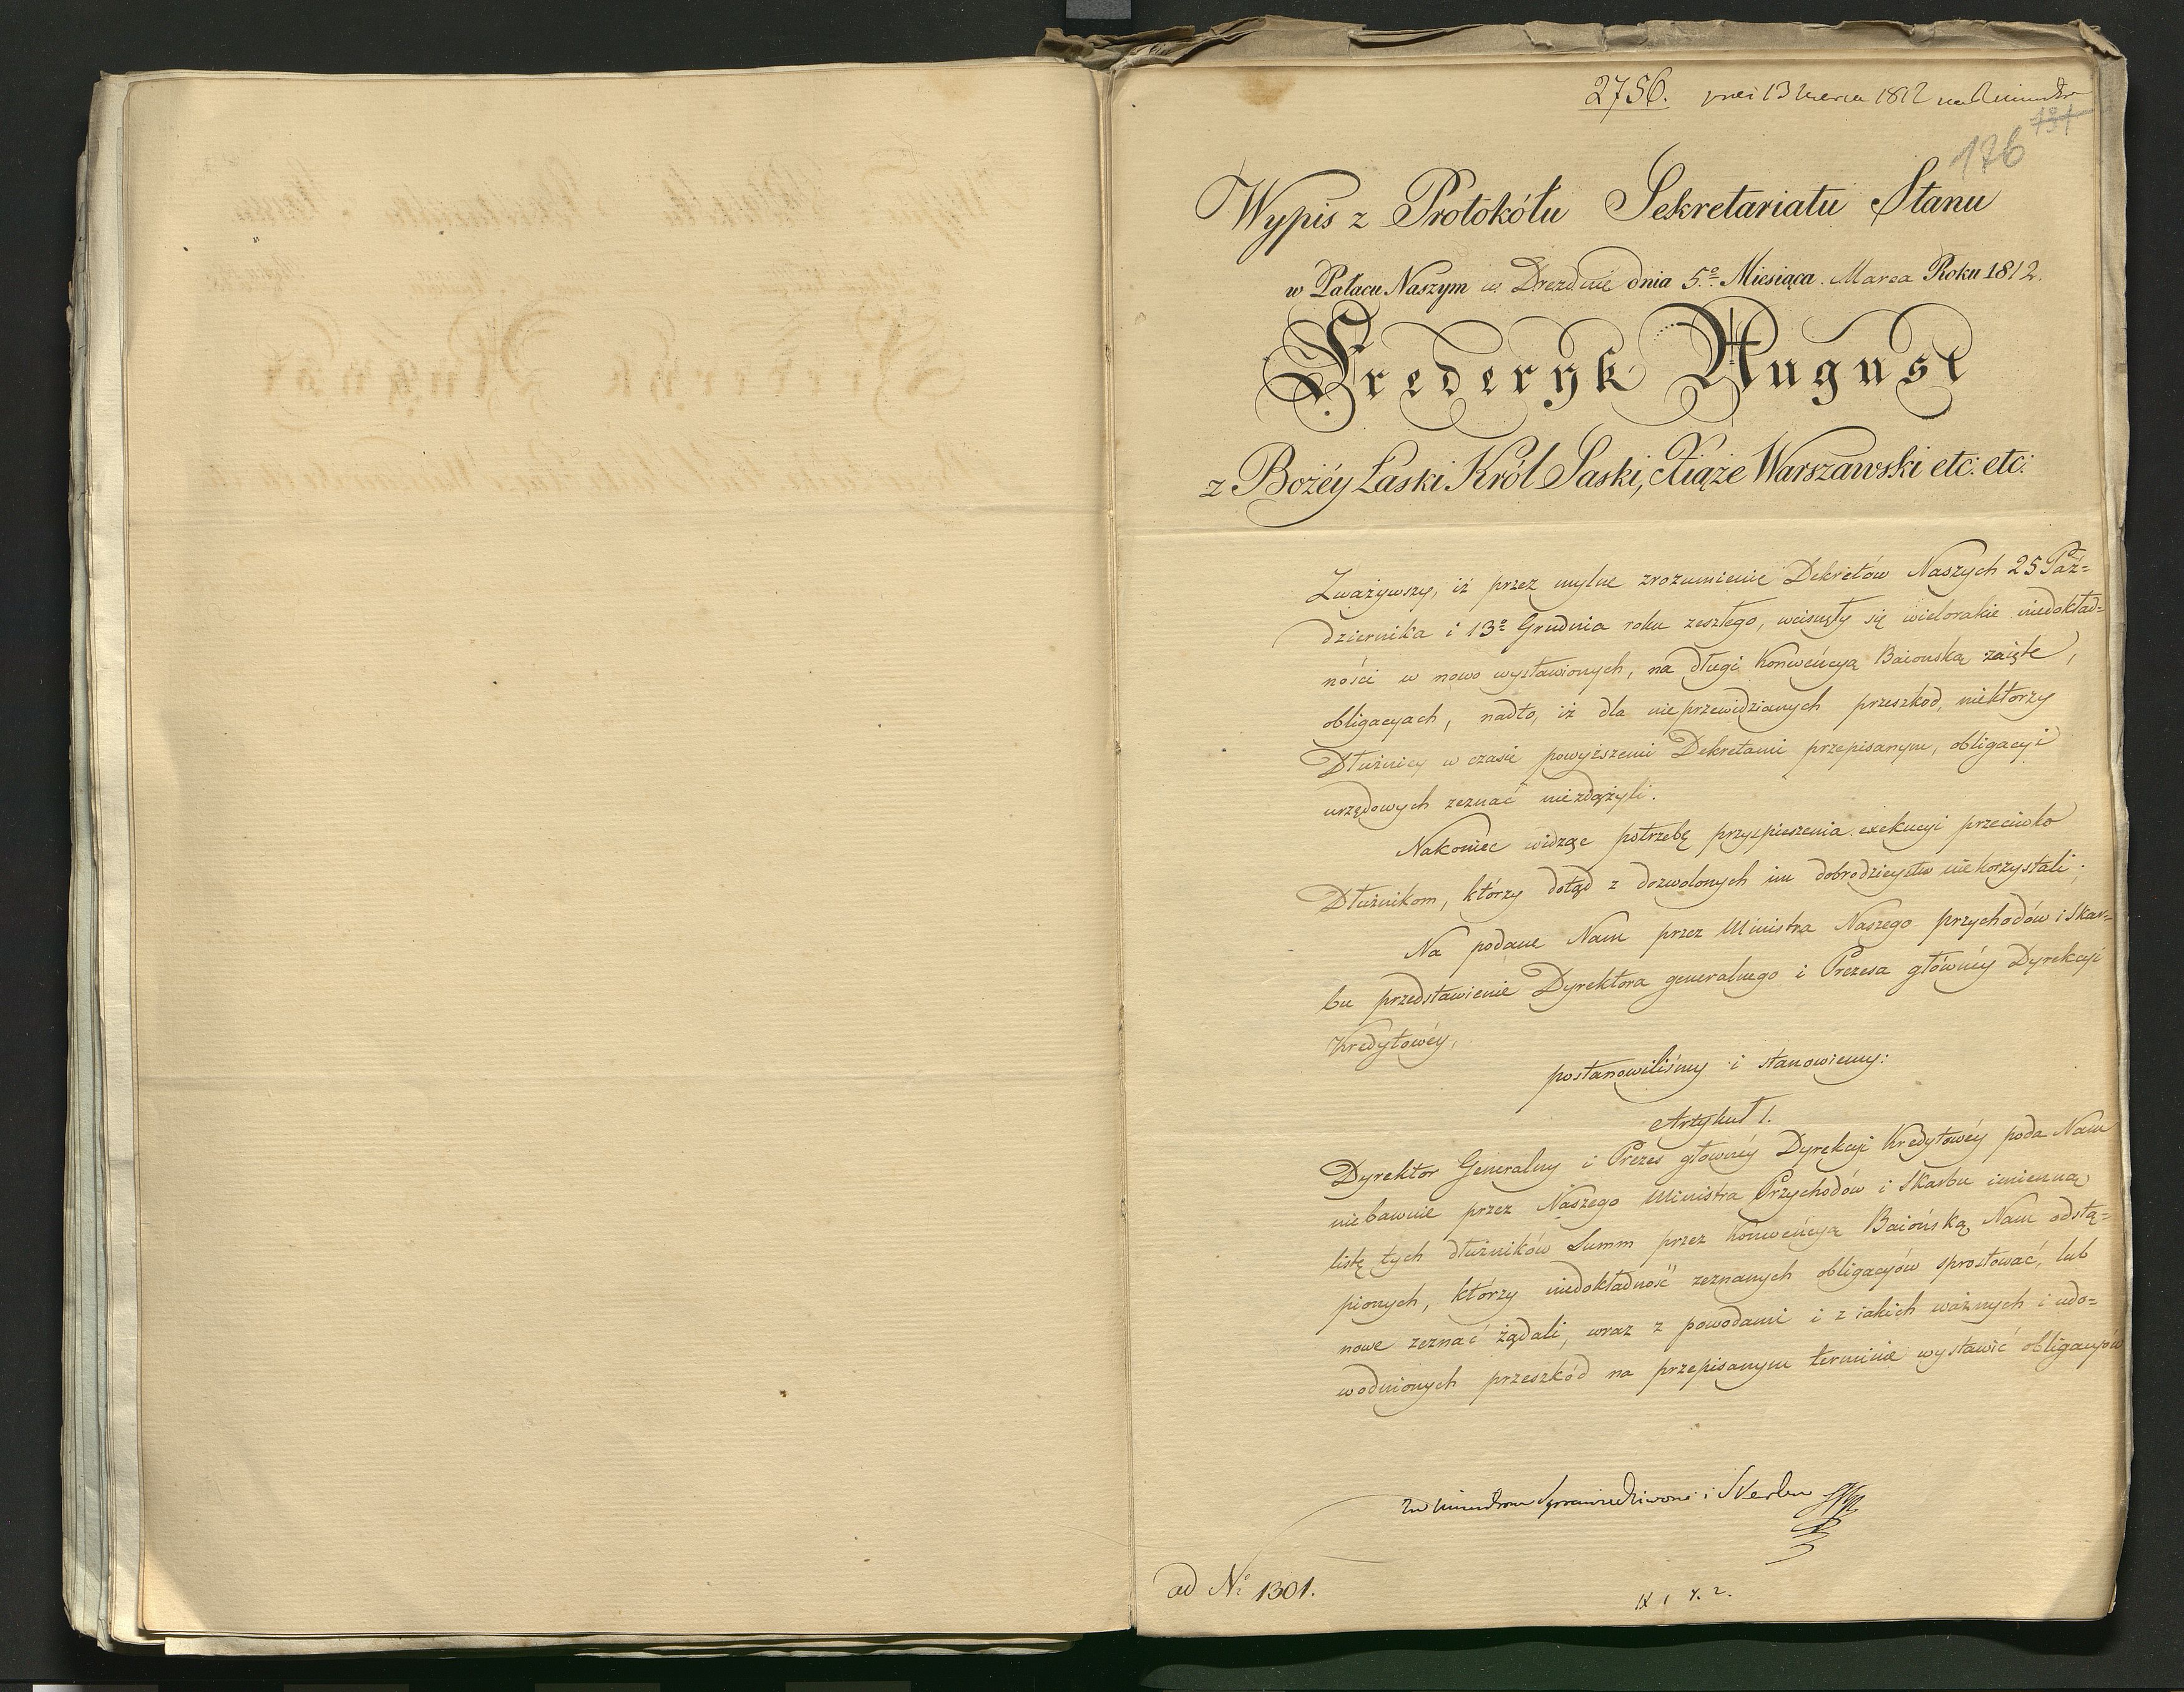 2756. 13 Marca 1812
131
176
Wypis z Protokółu Sekretariatu Stanu
w Pałacu Naszym w Dreznie dnia 5º Miesiąca Marca Roku 1812.
Frederyk August
z Bożéy Łaski Król Saski, Xiąże Warszawski etc: etc:
Zważywszy, iż przez mylne zrozumienie Dekretów Naszych 25 Paź=
dziernika i 13º Grudnia roku zeszłego, wcisnęły się wielorakie niedokład=
ności w nowo wystawionych, na długi Konwencyą Baiońską zaięte,
obligacyach, nadto, iż dla nieprzewidzianych przeszkod, niektorzy
Dłużnicy w czasie powyższemi Dekretami przepisanym, obligacyi
urzędowych zeznać niezdążyli.
Nakoniec widząc potrzebę przyspieszenia exekucyi przeciwko
Dłużnikom, którzy dotąd z dozwolonych im dobrodzieystw niekorzystali;
Na podane Nam przez Ministra Naszego przychodów i Skar=
bu przedstawienie Dyrektora generalnego i Prezesa główney Dyrekcyi
Kredytowéy,
postanowiliśmy i stanowiemy:
Artykuł 1.
Dyrektor Generalny i Prezes główney Dyrekcyi Kredytowéy poda Nam
niebawnie przez Naszego Ministra Przychodów i Skarbu imienną
listę tych dłużników Summ przez Konwencyą Baiońską Nam odstą=
pionych, którzy niedokładność zeznanych obligacyów sprostować, lub
nowe zeznać żądali, wraz z powodami i z iakich ważnych i udo=
wodnionych przeszkód na przepisanym terminie wystawić obligacyów
i Skarbu
ad Nº 1301.